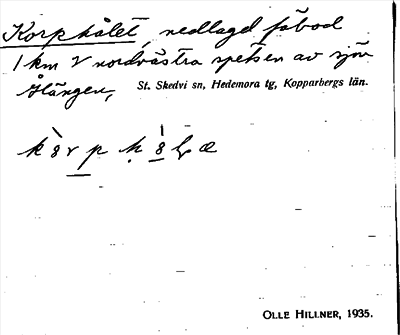 Korphålet, nedlagd fäbod
1 km V nordvästra spetsen av sjön
St. Skedvi sn, Hedemora tg, Kopparbergs län.
OLLE HILLNER, 1935.